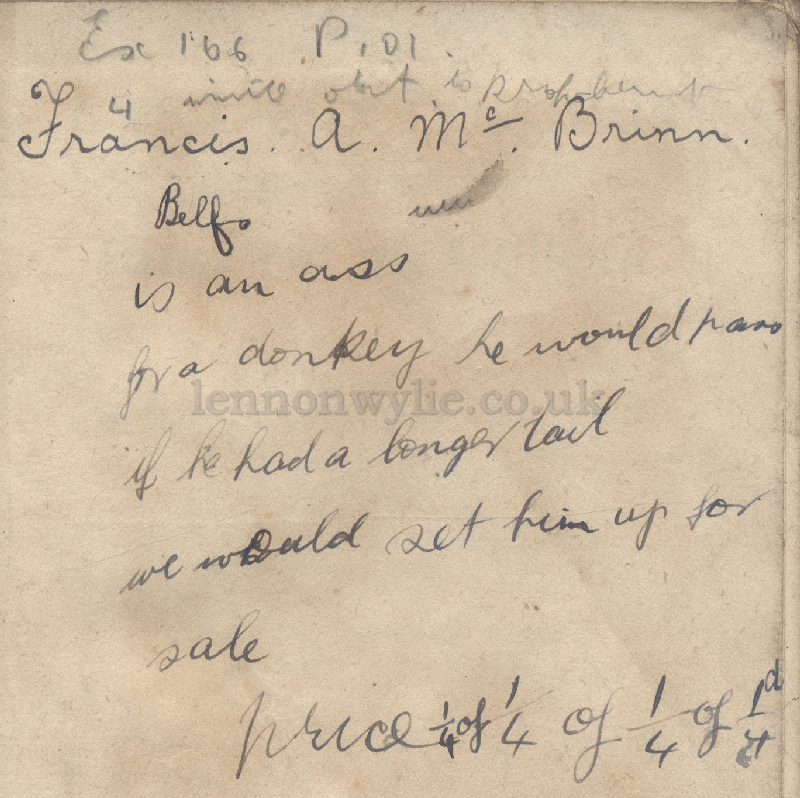 Ex 166 P.101.
4
Francis. A. Mc. Brinn.
Belf.
is an ass
for a donkey he would pass
lennonwylie.co.uk
if he had a longer tail
we would set him up for
sale
price 1/4 of 1/4 of 1/4 of 1/4 d